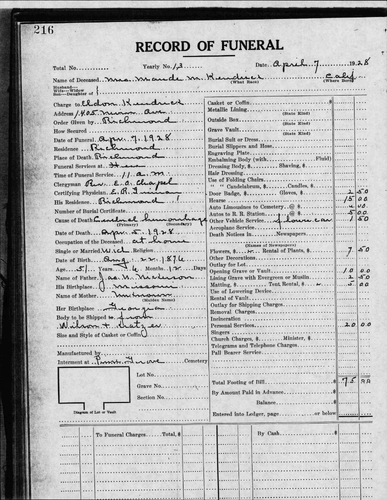 216
RECORD OF FUNERAL
Total No. Yearly No. 13 Date April 7 1928
Name of Deceased Mrs. Maude M. Kendrick Calif
(What Race) (Where Born)
Husband—
Wife—Widow
Son—Daughter of
Charge to Eldon Kendrick
Address 1405
Order Given by Richmond
How Secured
Date of Funeral Apr. 7, 1928
Residence Richmond
Place of Death Richmond
Funeral Services at Here
Time of Funeral Service 11 a.m.
Clergyman Rev. E. O. Chapel
Certifying Physician E. A.
His Residence Richmond
Number of Burial Certificate
Cause of Death Cerebral hemorrhage
(Primary) (Secondary)
Date of Death Apr. 5 1928
Occupation of the Deceased at home
Single or Married Wid Religion
Date of Birth Aug. 22 1876
Age 51 Years Months 12 Days
Name of Father Jas.
His Birthplace Missouri
Name of Mother Unknown
(Maiden Name)
Her Birthplace Georgia
Body to be Shipped to from
Wilson &
Size and Style of Casket or Coffin
Manufactured by
Interment at Cemetery
Lot No.
Grave No.
Section No.
Diagram of Lot or Vault
Casket or Coffin
Metallic Lining
(State Kind)
Outside Box
(State Kind)
Grave Vault
(State Kind)
Burial Suit or Dress
Burial Slippers and Hose
Engraving Plate
Embalming Body (with Fluid)
Dressing Body, $ Shaving, $
Hair Dressing
Use of Folding Chairs
" " Candelabrum, $ Candles, $
Door Badge, $ Gloves, $ 2 50
Hearse 15 00
Auto Limousines to Cemetery @ $
Autos to R. R. Station @ $ 5 00
Other Vehicle Service flower car 1 50
Aeroplane Service
Death Notices in Newspapers
(Names of Newspapers)
Flowers, $ Rental of Plants, $ 7 50
Other Decorations
Outlay for Lot
Opening Grave or Vault 10 00
Lining Grave with Evergreen or Muslin 2 50
Matting, $ Tent Rental, $ 2 50
Use of Lowering Device
Rental of Vault
Outlay for Shipping Charges
Removal Charges
Incineration
Personal Services 20 00
Singers
Church Charges, $ Minister, $
Telegrams and Telephone Charges
Pall Bearer Service
Total Footing of Bill $ 75
By Amount Paid in Advance
Balance
Entered into Ledger, page or below
To Funeral Charges Total, $ By Cash $